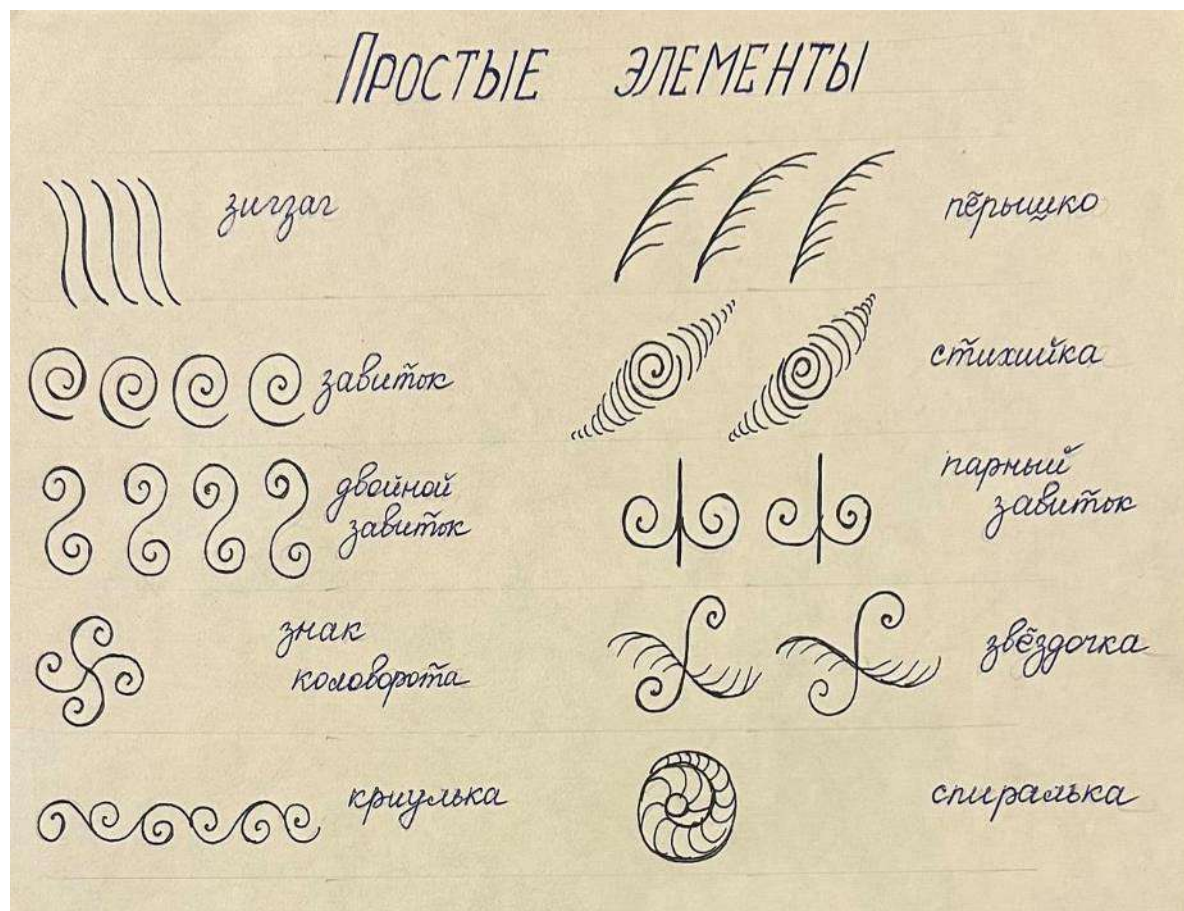 Простые элементы
зигзаг
завиток
двойной
завиток
знак
коловорота
криулька
пёрышко
стихийка
парный
завиток
звёздочка
спиралька